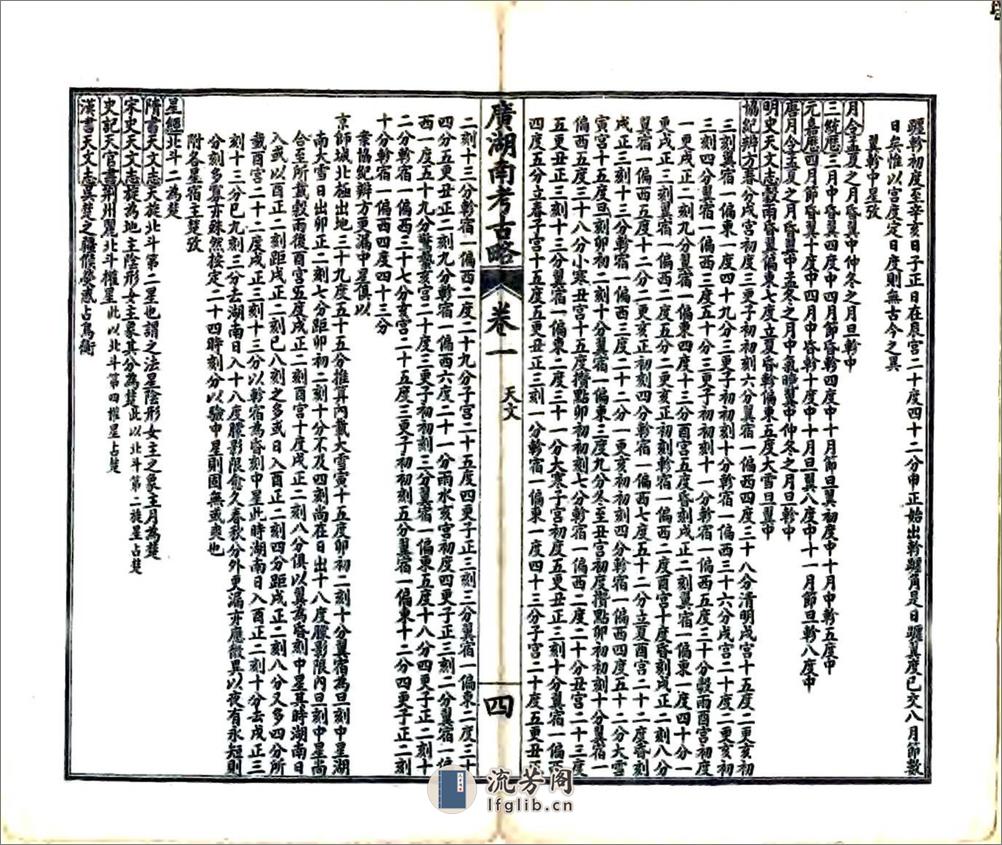 躔軫初度至辛亥日子正日在辰宮二十度四十二分申正始出軫躔角是日躔翼度已交八月節數
日矣惟以宮度定日度則無古今之異
翼軫中星攷
月令孟夏之月昏翼中仲冬之月旦軫中
三統歷三月中昏翼四度中四月節昏軫四度中十月節旦翼初度中十月中軫五度中
元嘉歷四月節昏翼十度中四月中昏軫十度中十月旦翼八度中十一月節旦軫八度中
唐月令孟夏之月昏翼中孟冬之月中氣曉翼中仲冬之月旦軫中
明史天文志穀雨昏翼偏東七度立夏昏軫偏東五度大雪旦翼中
協紀辨方春分戌宮初度三更子初初刻六分翼宿一偏西四度三十八分清明戌宮十五度二更亥初
三刻翼宿一偏東一度四十九分三更子初初刻十分軫宿一偏西三十六分戌宮二十度二更亥初
三刻四分翼宿一偏西三度五十分三更子初初刻十一分軫宿一偏西五度三十分穀雨酉宮初度
一更戌正二刻九分翼宿一偏東四度十三分二更亥正初刻軫宿一偏西二度酉宮十度昏刻戌正二刻八分
翼宿一偏西五度十二分二更亥正初刻四分軫宿一偏西七度五十二分立夏酉宮二十二度昏刻
戌正二刻十三分軫宿一偏西三度二十二分一更亥初初刻四分軫宿一偏西四度五十二分大雪
寅宮十五度旦刻卯初二刻十分翼宿一偏東三度九分冬至丑宮初度攢點卯初初刻十分翼宿一
偏西五度三十八分小寒丑宮十五度攢點卯初初刻七分軫宿一偏西二度二十分丑宮二十三度
五更丑正三刻十三分翼宿一偏東二度十一分大寒子宮初度五更丑正三刻十分翼宿一偏西
四度五分立春子宮十五度五更丑正三刻一分軫宿一偏東一度四十三分子宮二十度五更丑正
廣湖南考古略
卷一
天文
四
二刻十三分軫宿一偏西二度二十九分子宮二十五度四更子正三刻三分翼宿一偏東二度三十
四分五更丑正二刻九分軫宿一偏西六度二十一分雨水亥宮初度四更子正三刻二分翼宿一偏
西一度五十九分驚蟄亥宮二十度三更子初初刻三分翼宿一偏東五度十八分四更子正二刻十
二分軫宿一偏西三十七分亥宮二十五度三更子初初刻五分翼宿一偏東十二分四更子正二刻
十分軫宿一偏西四度四十三分
案協紀辨方更漏中星俱以
京師城北極出地三十九度五十五分推算內載大雪寅十五度卯初二刻十分翼宿為旦刻中星湖
南大雪日出卯正二刻七分距卯初二刻十分不及四刻尚在日出十八度朦影限內旦刻中星尚
合至所載穀雨後酉宮五度戌正二刻酉宮十度戌正二刻八分俱以翼為昏刻中星其時湖南日
入或以酉正二刻距戌正二刻已八刻之多或日入酉正二刻四分距戌正二刻八分又多四分所
載酉宮二十二度戌正二刻十三分以軫宿為昏刻中星此時湖南日入酉正二刻十分去戌正二
刻十三分已九刻三分去湖南日入十八度朦影限愈久春秋分外更漏亦應微異以夜有永短則
分刻多寡亦殊然按定二十四時刻分以驗中星則固無或爽也
附各星宿主楚攷
星經北斗二為楚
隋書天文志天旋北斗第二星也謂之法星陰形女主之象主月為楚
宋史天文志旋為地主陰形女主象其分為楚此以北斗第二旋星占楚
史記天官書荊州屬北斗權星此以北斗第四權星占楚
漢書天文志吳楚之疆候熒惑占鳥衡
流芳阁
lfglib.cn